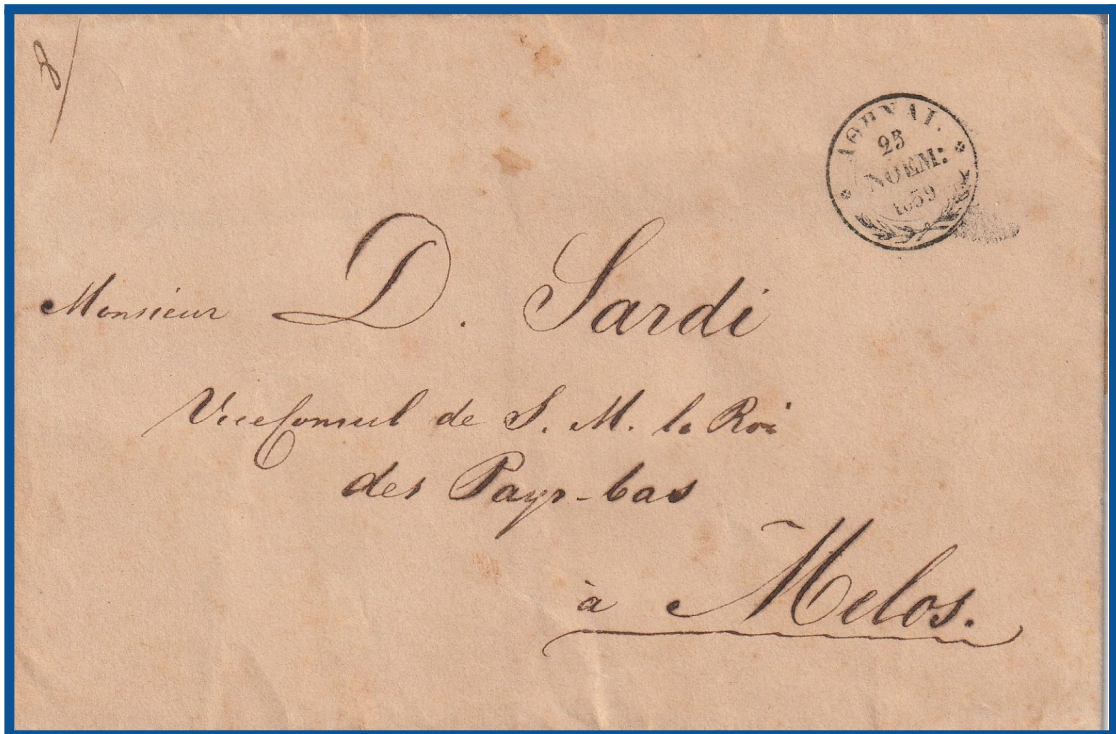 8
ΑΘΗΝΑΙ.
25
ΝΟΕΜ:
1859
Monsieur D. Sardi
Vice Consul de S. M. le Roi
des Pays-bas
à Melos.